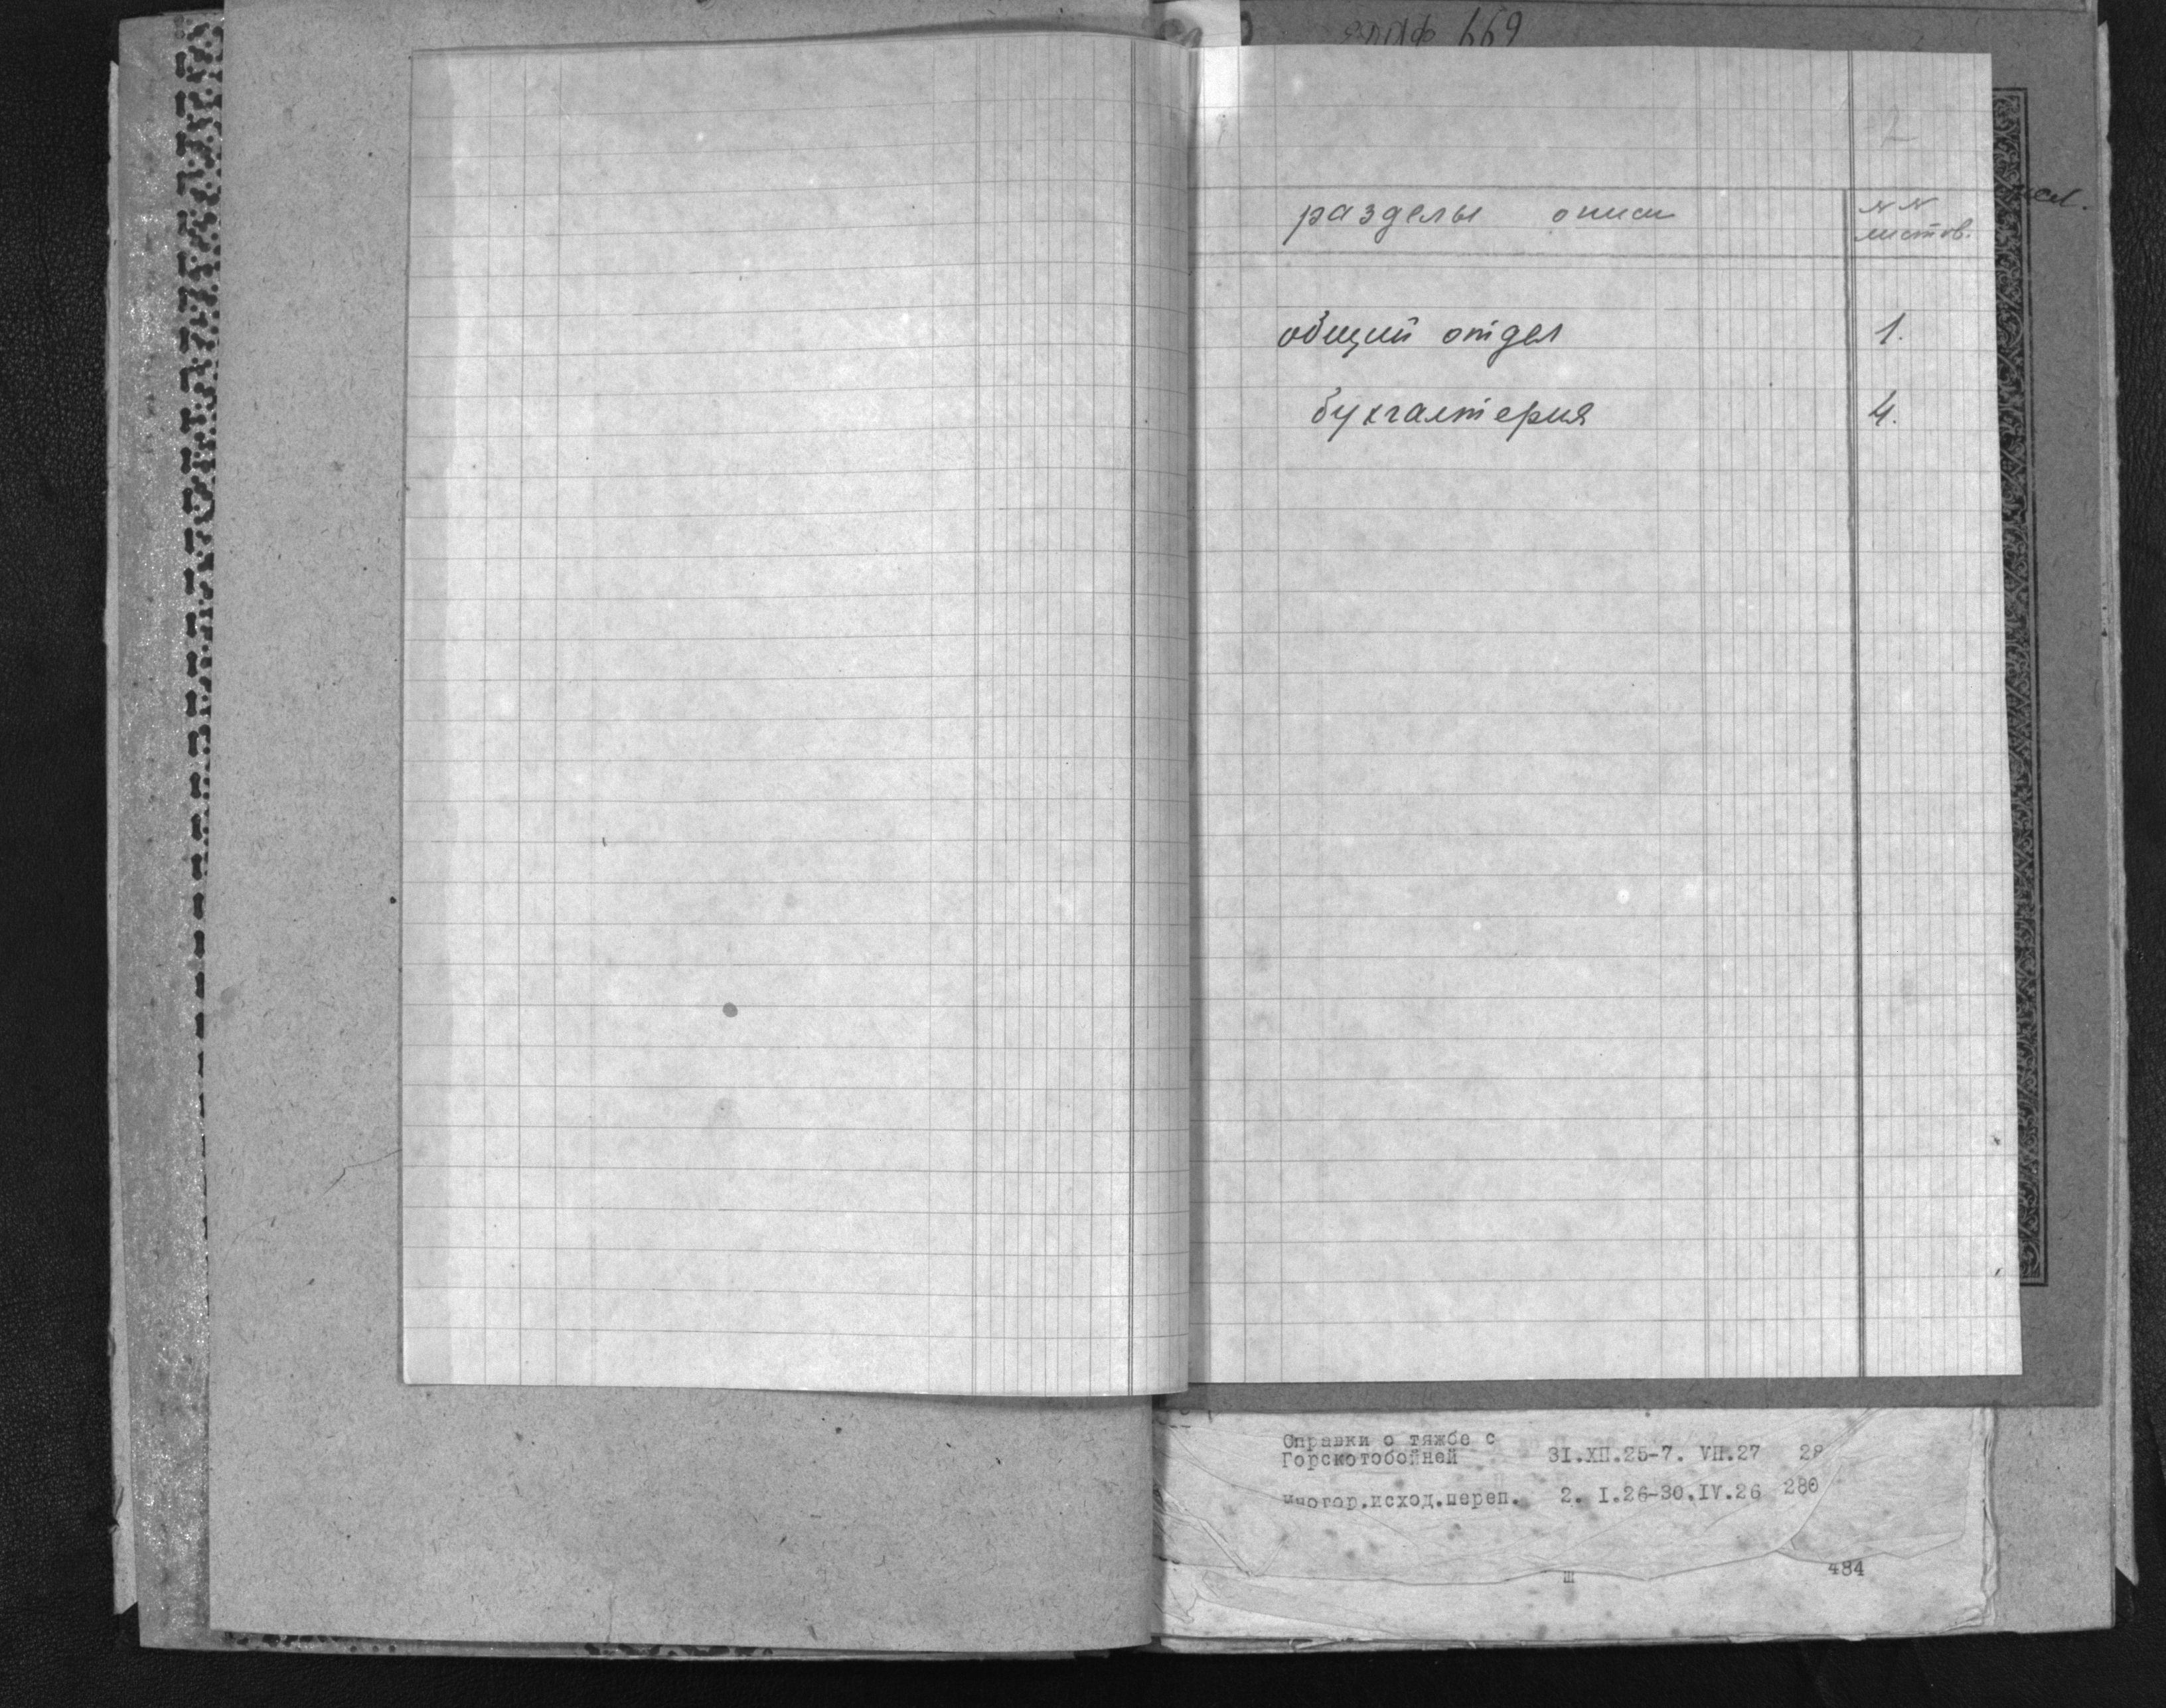 669
2
разделы описи
NN
листов.
общий отдел 1.
бухгалтерия 4.
Справки о тяжбе с
Горскотобойней 31.XII.25-7. VII.27 28
иногор.исход.переп. 2. I.26-30.IV.26 280
484